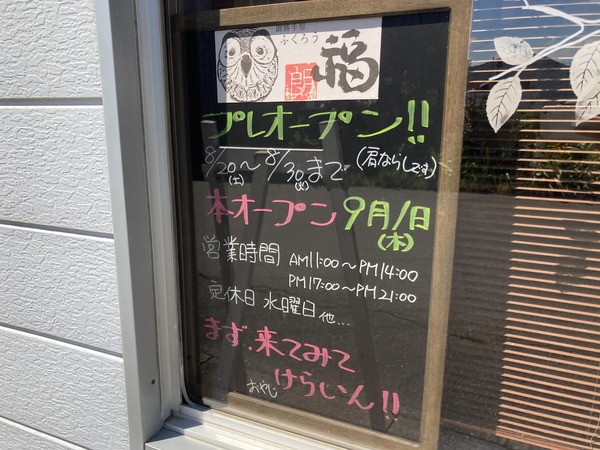 ふくろう
福
朗
プレオープン!!
8/20(土)〜8/30(火)まで (肩ならしです)
本オープン 9月1日(木)
営業時間 AM11:00〜PM14:00
PM17:00〜PM21:00
定休日 水曜日 他...
まず、来てみて
けらいん!!
おやじ